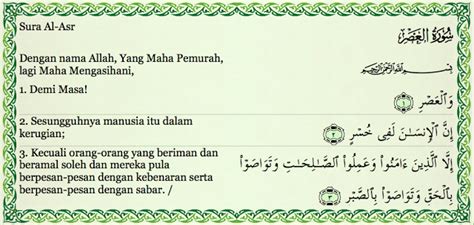 Sura Al-Asr
سُورَةُ الْعَصْرِ
Dengan nama Allah, Yang Maha Pemurah,
lagi Maha Mengasihani,
بِسْمِ اللَّهِ الرَّحْمَٰنِ الرَّحِيمِ
1. Demi Masa!
وَالْعَصْرِ ١
2. Sesungguhnya manusia itu dalam
kerugian;
إِنَّ الْإِنسَٰنَ لَفِى خُسْرٍ ٢
3. Kecuali orang-orang yang beriman dan
beramal soleh dan mereka pula
berpesan-pesan dengan kebenaran serta
berpesan-pesan dengan sabar. /
إِلَّا الَّذِينَ ءَامَنُوا۟ وَعَمِلُوا۟ الصَّٰلِحَٰتِ وَتَوَاصَوْا۟
بِالْحَقِّ وَتَوَاصَوْا۟ بِالصَّبْرِ ٣